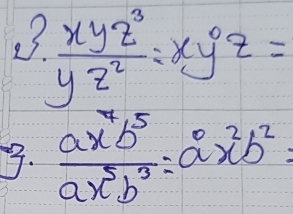 3. xyz³/yz² = xy⁰z =
3. ax⁷b⁵/ax⁵b³ = a⁰x²b² =